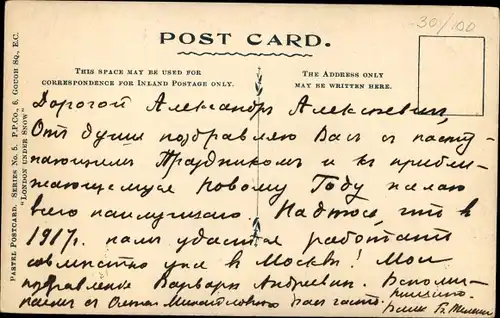 30/100
POST CARD.
THIS SPACE MAY BE USED FOR
CORRESPONDENCE FOR INLAND POSTAGE ONLY.
THE ADDRESS ONLY
MAY BE WRITTEN HERE.
PASTEL POSTCARD. SERIES No. 5. P.P.Co., 6, GOUGH SQ., E.C.
"LONDON UNDER SNOW"
Дорогой Александръ Алексѣевич,
Отъ души поздравляю Васъ съ насту-
пающимъ Праздникомъ и къ прибли-
жающемуся Новому Году желаю
всего наилучшаго. Надѣюсь, что въ
1917 г. намъ удастся работать
совмѣстно уже въ Москвѣ! Мои
поздравленія Варварѣ Андреевнѣ. Вспоми-
наемъ съ Михайловной Васъ часто.